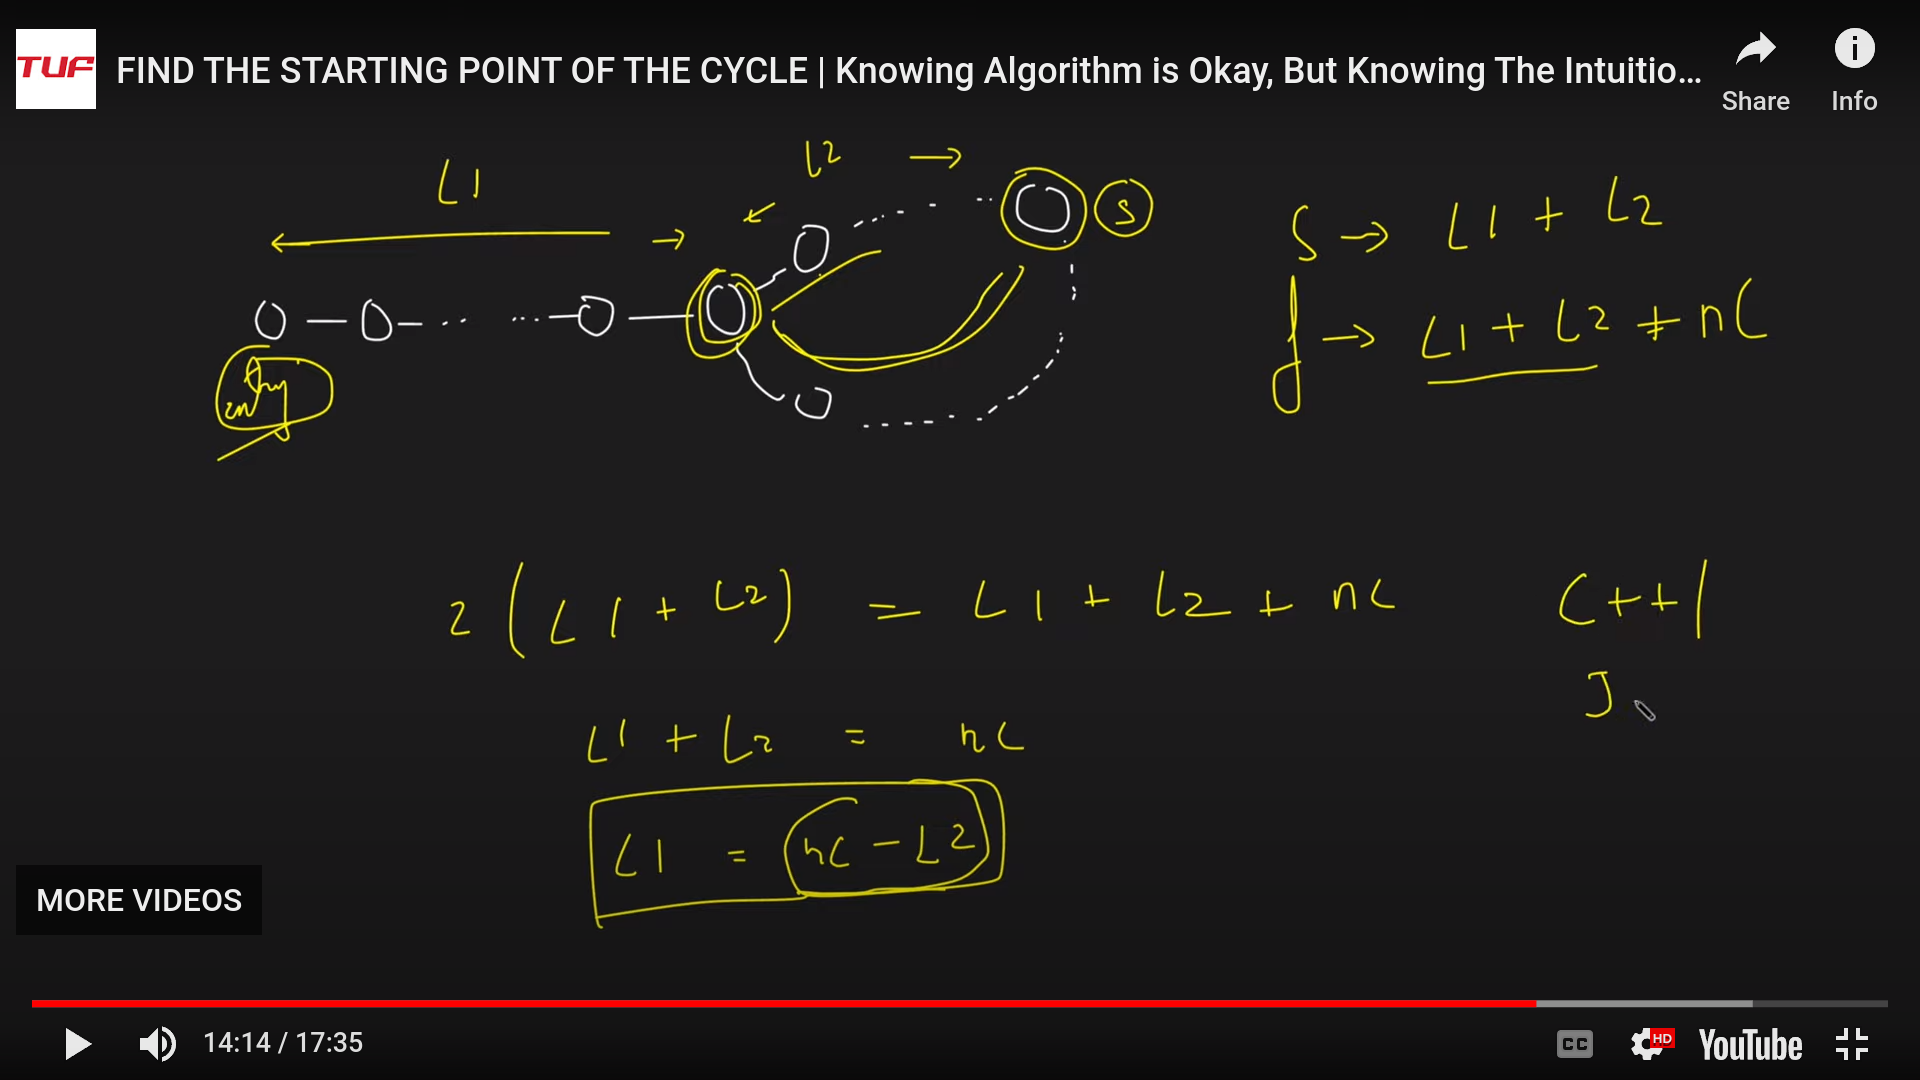 TUF
FIND THE STARTING POINT OF THE CYCLE | Knowing Algorithm is Okay, But Knowing The Intuitio...
Share
Info
L1
L2
S
S → L1 + L2
f → L1 + L2 + nC
entry
2 ( L1 + L2 ) = L1 + L2 + nC
C++ |
J
L1 + L2 = nC
L1 = nC - L2
MORE VIDEOS
14:14 / 17:35
CC
HD
YouTube